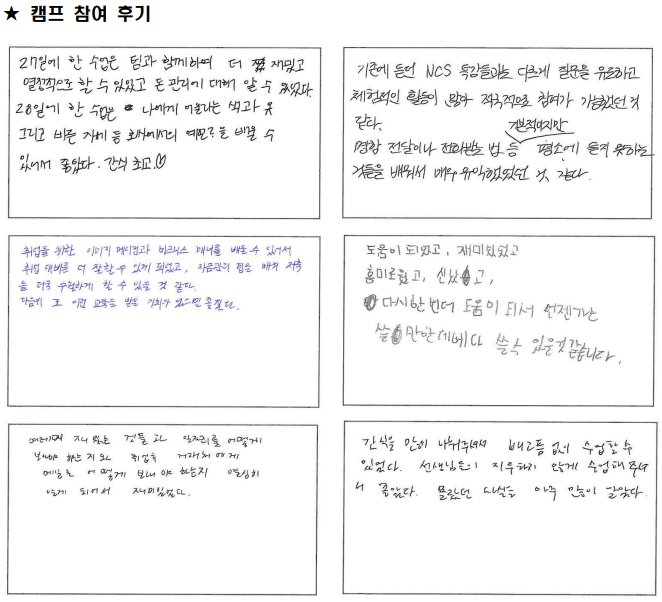 ★ 캠프 참여 후기
27일에 한 수업은 팀과 함께하여 더 재밌고
열정적으로 할 수 있었고 돈 관리에 대해 알 수 있었다.
28일에 한 수업은 나에게 어울리는 색과 옷
그리고 바른 자세 등 회사에서의 예모를 배울 수
있어서 좋았다. 간식 최고♡
기존에 듣던 NCS 특강들과는 다르게 질문을 유도하고
체험적인 활동이 많아 적극적으로 참여가 가능했던 것
같다.
기본적이지만
명함 전달이나 전화받는 법 등 평소에 듣지 못하는
것들을 배워서 매우 유익했었던 것 같다.
취업을 위한 이미지 메이킹과 비즈니스 매너를 배울 수 있어서
취업 대비를 더 잘할 수 있게 되었고, 자금관리 팁을 배워 저축
을 더욱 수월하게 할 수 있을 것 같다.
다음에 또 이런 교육을 받을 기회가 있으면 좋겠다.
도움이 되었고, 재미있었고
흥미로웠고, 신났고,
다시한번더 도움이 되서 언젠가는
쓸만한데에다 쓸수 있을것같습니다.
재미 있는 것들과 일자리를 어떻게
보내야 하는지와 취업후 거래처에게
메일을 어떻게 보내야 하는지 열심히
알게 되어서 재미있었다.
간식을 많이 나눠주셔서 배고픔 없이 수업할 수
있었다. 선생님들이 지루하지 않게 수업해 주셔
서 좋았다. 몰랐던 사실을 아주 많이 알았다.